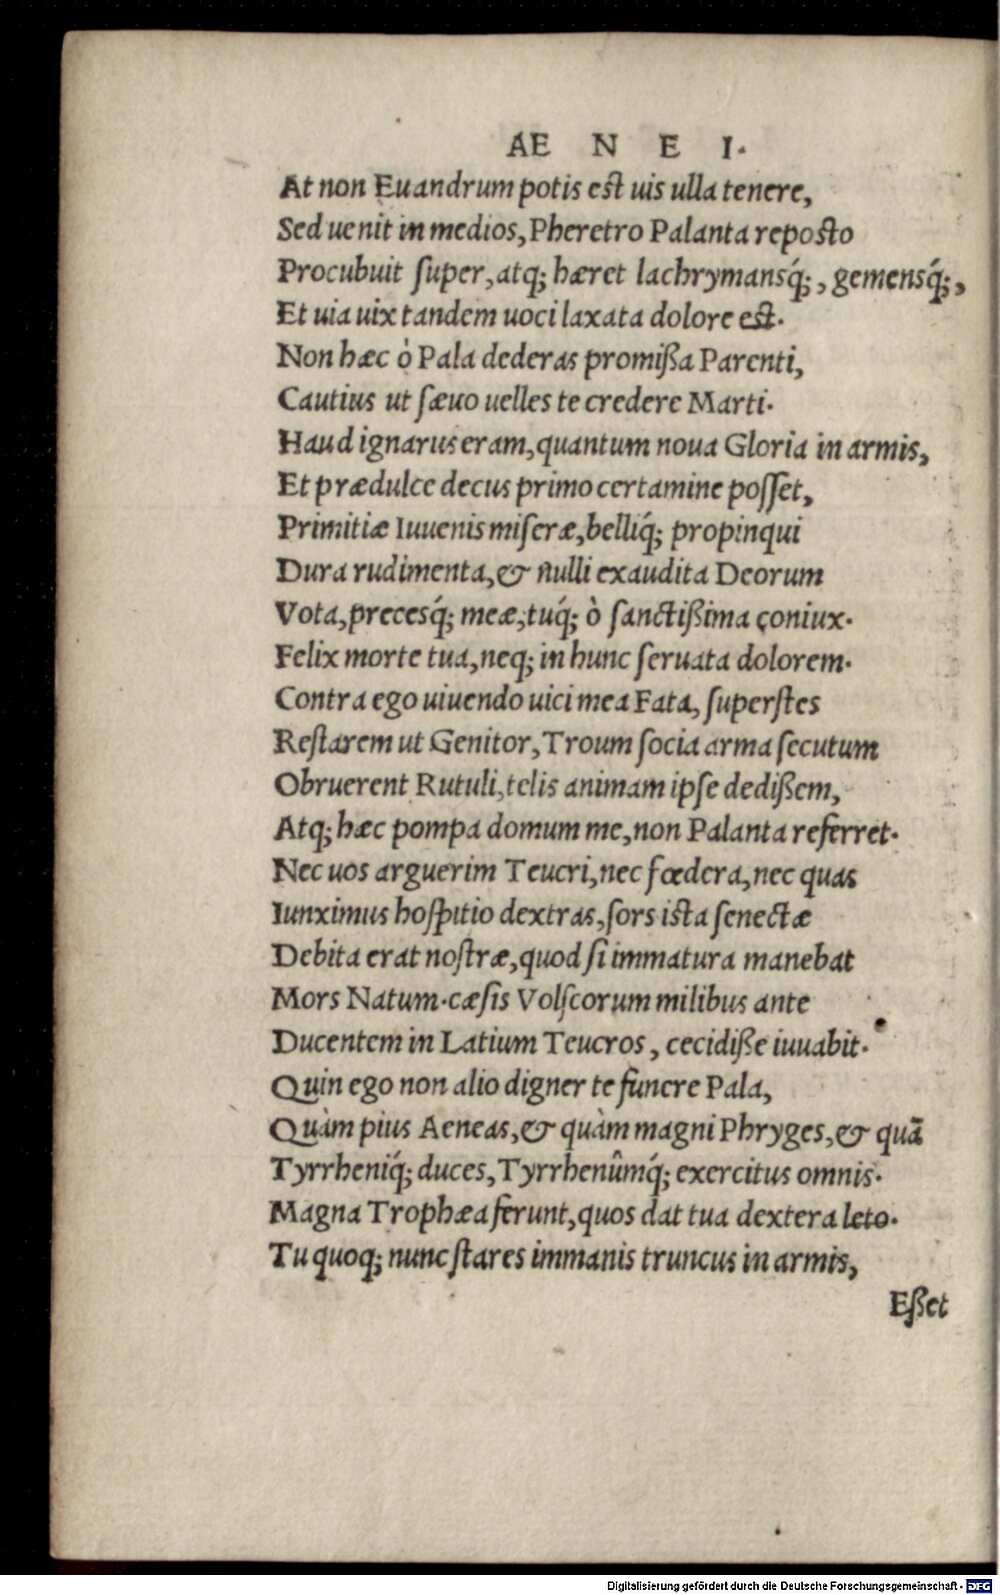 AE N E I.
At non Euandrum potis est uis ulla tenere,
Sed uenit in medios, Pheretro Palanta reposto
Procubuit super, atq; hæret lachrymansq́;, gemensq́;,
Et uia uix tandem uoci laxata dolore est.
Non hæc ò Pala dederas promißa Parenti,
Cautius ut sæuo uelles te credere Marti.
Haud ignarus eram, quantum noua Gloria in armis,
Et prædulce decus primo certamine posset,
Primitiæ Iuuenis miseræ, belliq́; propinqui
Dura rudimenta, & nulli exaudita Deorum
Vota, precesq́; meæ, tuq́; ò sanctißima coniux.
Felix morte tua, neq; in hunc seruata dolorem.
Contra ego uiuendo uici mea Fata, superstes
Restarem ut Genitor, Troum socia arma secutum
Obruerent Rutuli, telis animam ipse dedißem,
Atq; hæc pompa domum me, non Palanta referret.
Nec uos arguerim Teucri, nec fœdera, nec quas
Iunximus hospitio dextras, sors ista senectæ
Debita erat nostræ, quod si immatura manebat
Mors Natum. cæsis Volscorum milibus ante
Ducentem in Latium Teucros, cecidiße iuuabit.
Quin ego non alio digner te funere Pala,
Quàm pius Aeneas, & quàm magni Phryges, & quã
Tyrrheniq́; duces, Tyrrhenûmq́; exercitus omnis.
Magna Trophæa ferunt, quos dat tua dextera leto.
Tu quoq; nunc stares immanis truncus in armis,
Eßet
Digitalisierung gefördert durch die Deutsche Forschungsgemeinschaft - DFG